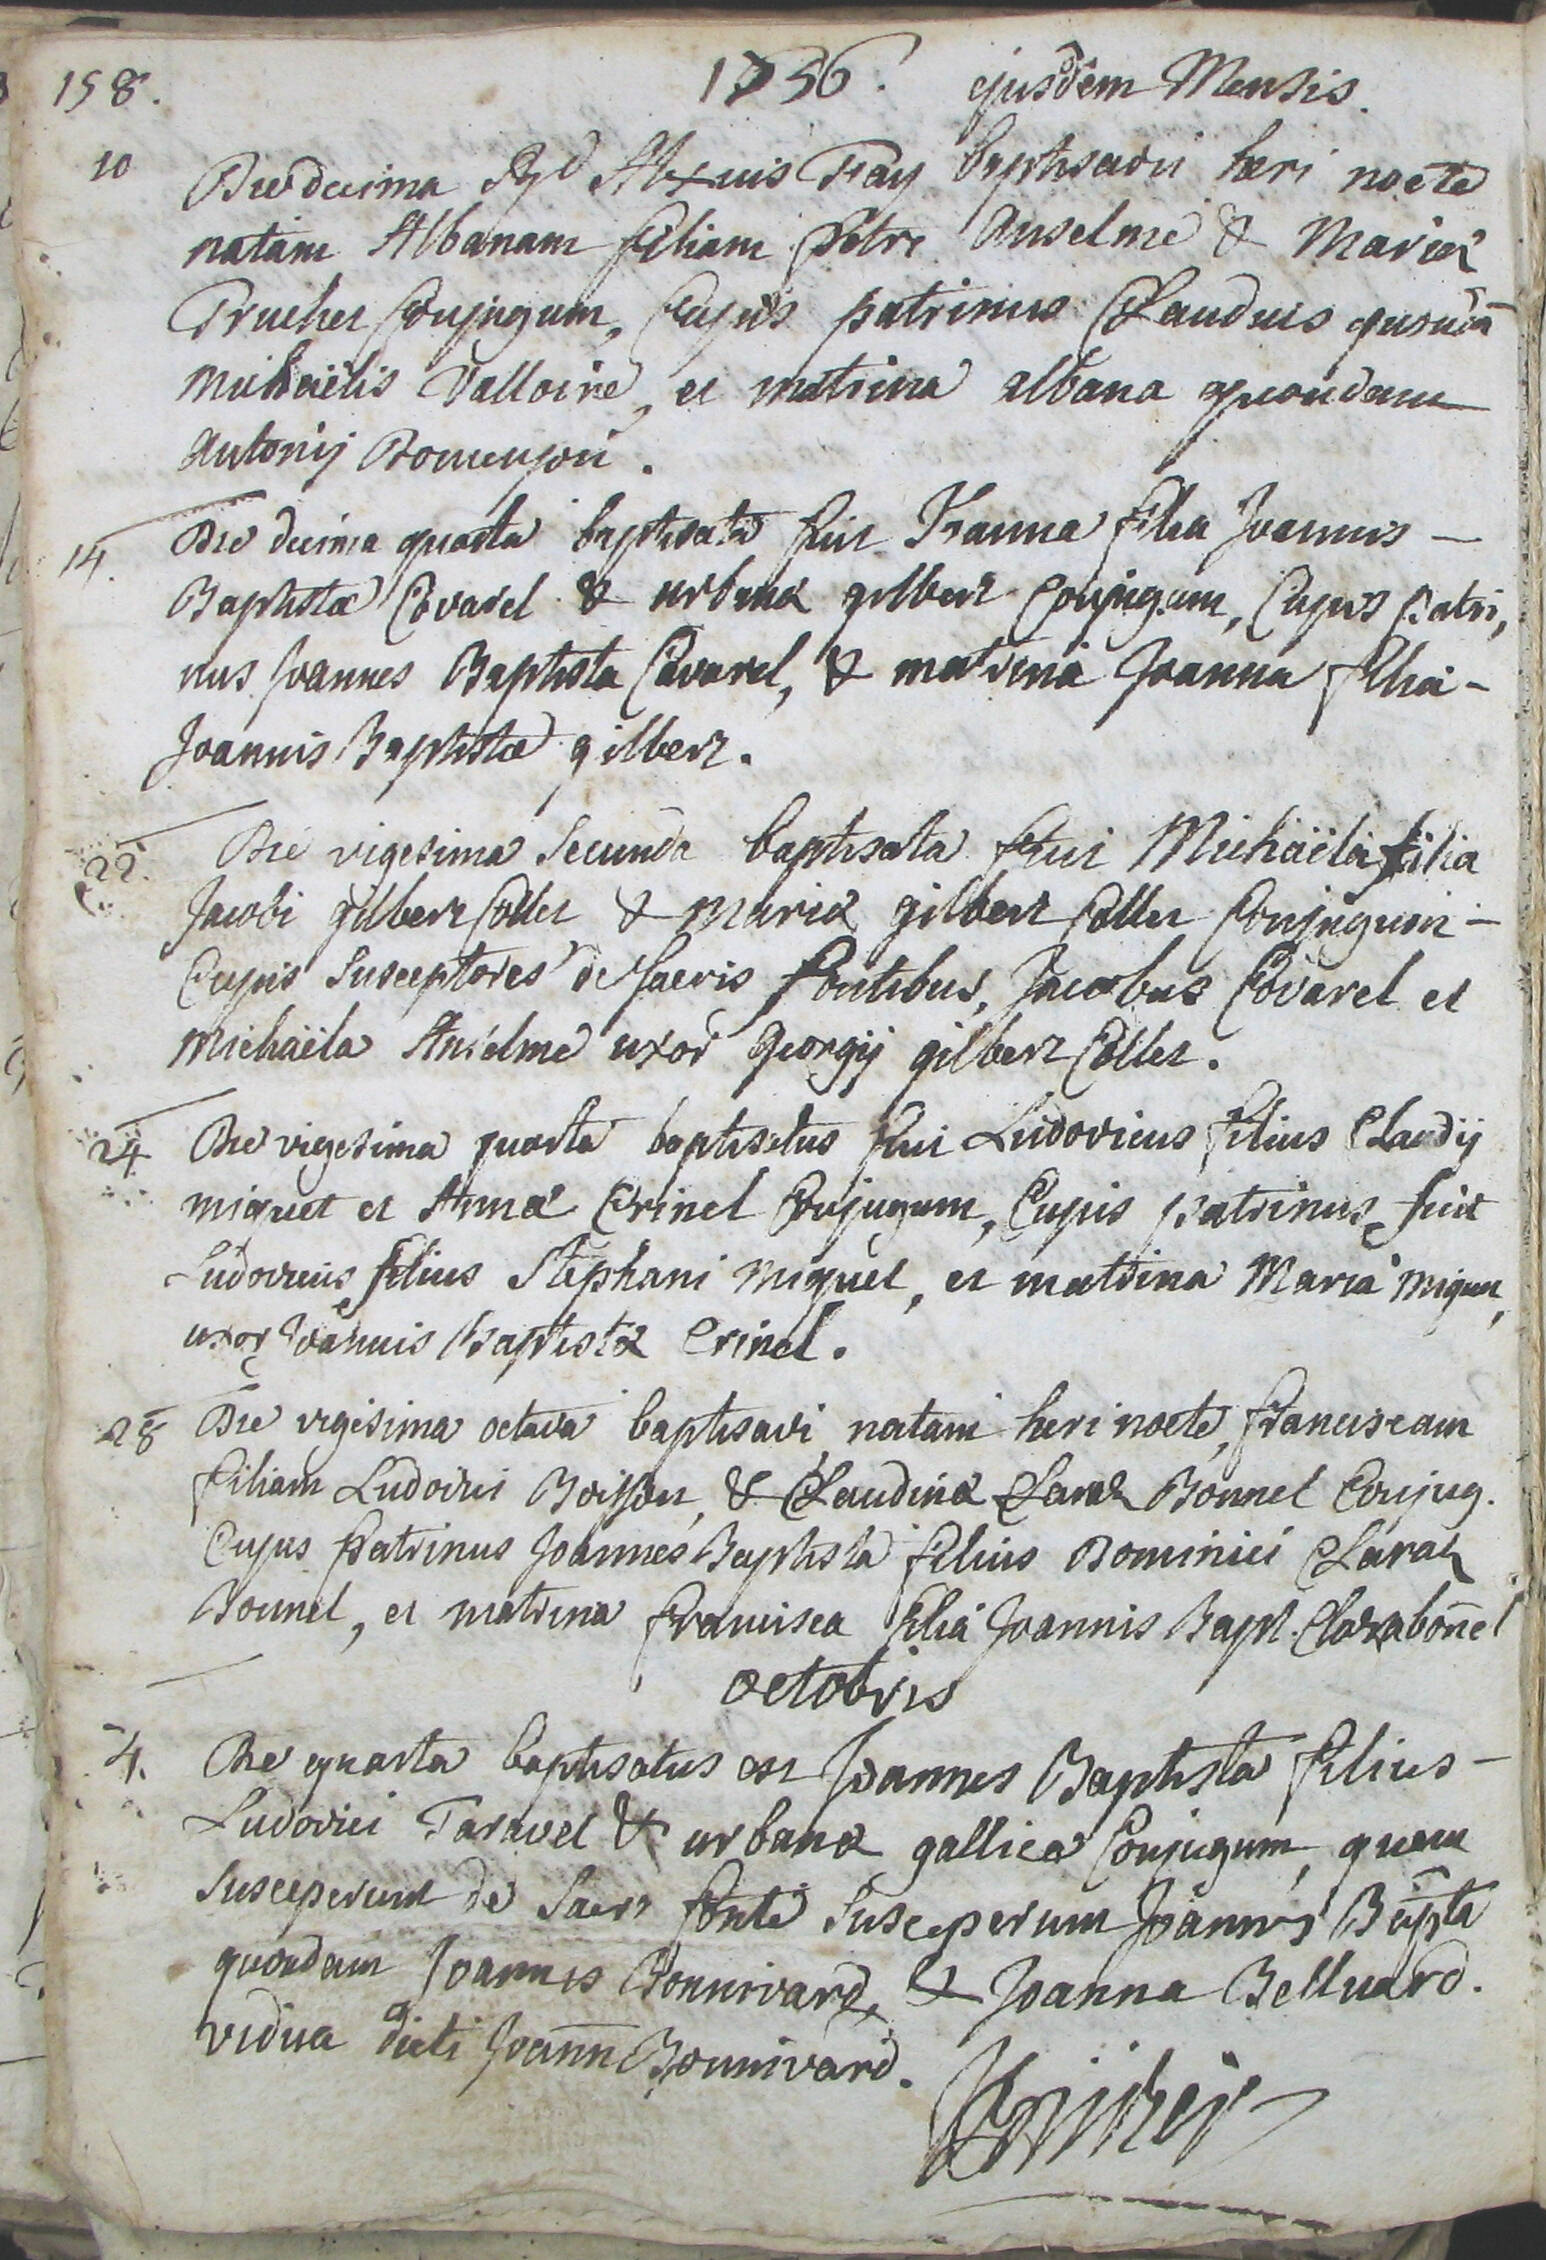 158. 1756. ejusdem Mensis.
10 Die decima Rd Alexius Fay baptisavit heri nocte
natam Albanam filiam petri Anselme & Mariæ
Truchet Conjugum, Cujus patrinus Claudius quondā
michaëlis Valloire, et matrina albana quondam
Antonij Domenjon.
14. Die decima quarta baptisata fuit Joanna filia Joannis -
Baptistæ Covarel & urbanæ gilbert Conjugum, Cujus patri,
nus Joannes Baptista Covarel, & matrina Joanna filia -
Joannis Baptistæ gilbert.
22. Die vigesima secunda baptisata fuit Michaëla filia
Jacobi gilbert Collet & mariæ gilbert Collet Conjugum -
Cujus Susceptores de sacris fontibus, Jacobus Covarel et
Michaëla Anselme uxor georgij gilbert Collet.
24 Die vigesima quarta baptisatus fuit Ludovicus filius Claudij
miquet et Annæ Crinel Conjugum, Cujus patrinus fuit
Ludovicus filius Stephani Miquet, et matrina Maria miquet,
uxor Joannis Baptistæ Crinel.
28 Die vigesima octava baptisavi natam heri nocte, franciscam
filiam Ludovici Boisson, & Claudinæ Claraz Bonnel Conjug.
Cujus Patrinus Joannes Baptista filius Dominici Claraz
Bonnel, et matrina francisca filia Joannis Bapt. Clarabon̄el
octobris
4. Die quarta baptisatus est Joannes Baptista filius -
Ludovici Taravel & urbanæ gallice Conjugum, quem
susceperunt de sacro fonte susceperunt Joannes Bapta
quondam Joannis Bonnivard, & Joanna Belluard.
vidua dicti Joann̄ Bonnivard.